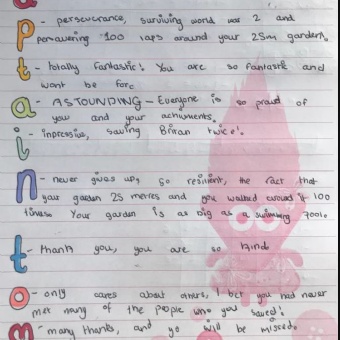 a
p - perseverance, surviving world war 2 and
persavering 100 laps around your 25m garden.
t - totally fantastic! You are so fantastic and
want be forc
a - ASTOUNDING - Everyone is so proud of
you and your achivments.
i - inpressive, saving Briran twice!
n - never gives up, so resilient, the fact that
your garden 25 metres and you walked around it 100
times. Your garden is as big as a swimming poole
t - thank you, you are so kind
o - only cares about others, I bet you had never
met many of the people who you saved!
m - many thanks, and yo will be missed.